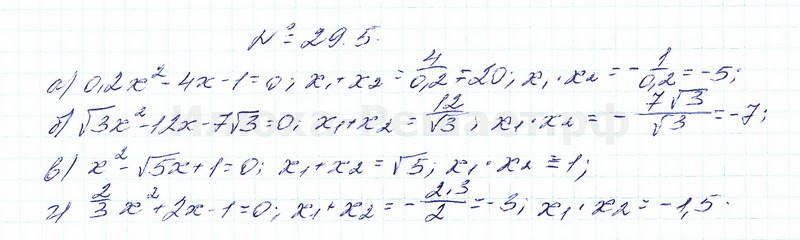 № 29.5.
а) 0,2x² - 4x - 1 = 0; x₁ + x₂ = 4/0,2 = 20; x₁ · x₂ = - 1/0,2 = -5;
б) √3x² - 12x - 7√3 = 0; x₁ + x₂ = 12/√3; x₁ · x₂ = - 7√3/√3 = -7;
в) x² - √5x + 1 = 0; x₁ + x₂ = √5; x₁ · x₂ = 1;
г) 2/3 x² + 2x - 1 = 0; x₁ + x₂ = - 2·3/2 = -3; x₁ · x₂ = -1,5.